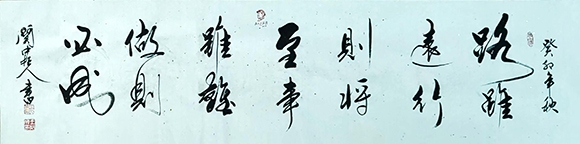 癸卯年秋
路雖
遠行
則将
至事
雖難
做則
必成
人書